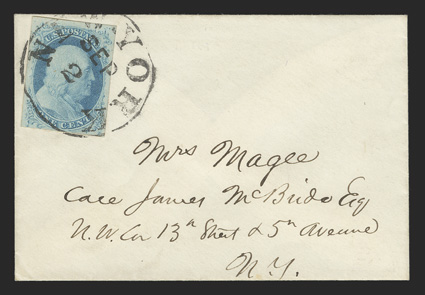 U.S. POSTAGE
ONE CENT
NEW YORK
SEP
2
Mrs Magee
Care James McBride Esq
N.W. Cor 13th Street & 5th Avenue
N.Y.